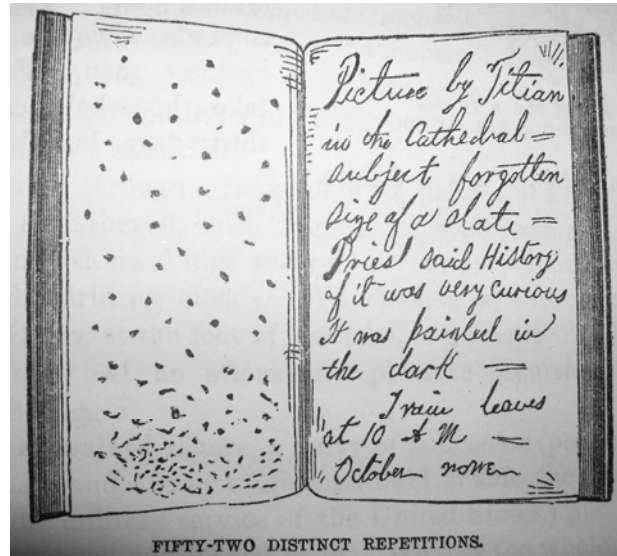 Picture by Titian
in the Cathedral =
subject forgotten
size of a slate =
Priest said History
of it was very curious
It was painted in
the dark —
Train leaves
at 10 A M —
October
FIFTY-TWO DISTINCT REPETITIONS.